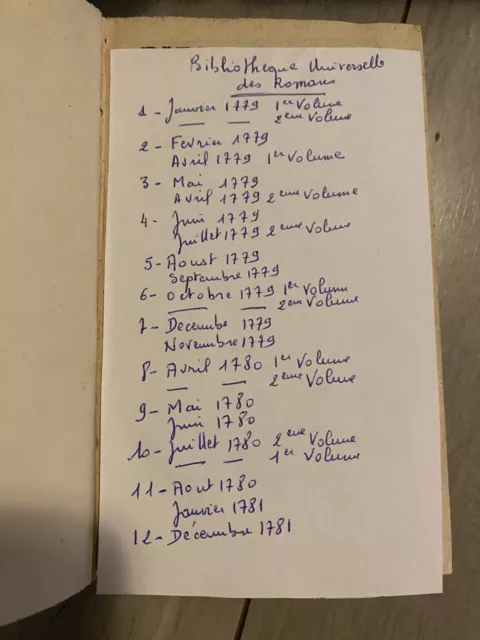 Bibliotheque Universelle
des Romans
1 - Janvier 1779 1er Volume
— — 2eme Volume
2 - Fevrier 1779
Avril 1779 1er Volume
3 - Mai 1779
Avril 1779 2eme Volume
4 - Juin 1779
Juillet 1779 2eme Volume
5 - Aoust 1779
Septembre 1779
6 - Octobre 1779 1er Volume
— — 2eme Volume
7 - Decembe 1779
Novembre 1779
8 - Avril 1780 1er Volume
— — 2eme Volume
9 - Mai 1780
Juin 1780
10 - Juillet 1780 2eme Volume
— — 1er Volume
11 - Aout 1780
Janvier 1781
12 - Décembre 1781